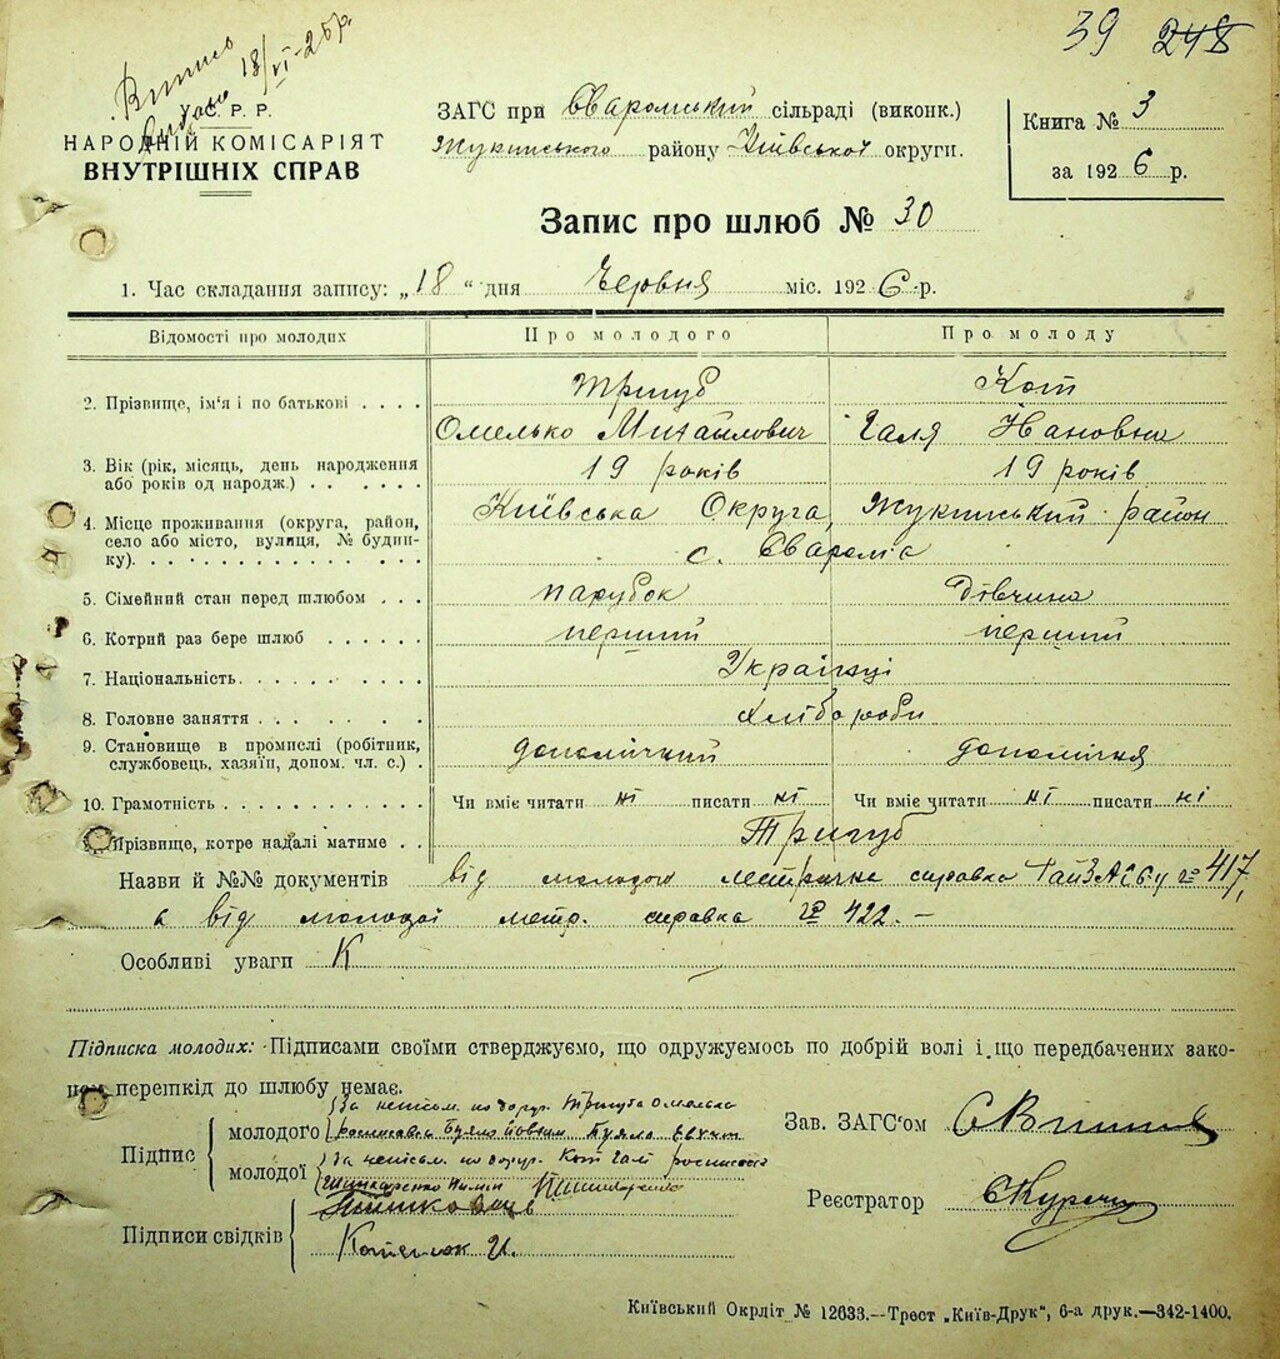 39 248
Випись
видано 18/VI-26р.
У. С. Р. Р.
НАРОДНІЙ КОМІСАРІЯТ
ВНУТРІШНІХ СПРАВ
ЗАГС при Сваромський сільраді (виконк.)
Жукинського району Київської округи.
Книга № 3
за 1926 р.
Запис про шлюб № 30
1. Час складання запису: „18“ дня Червня міс. 1926 р.
Відомості про молодих Про молодого Про молоду
2. Прізвище, ім'я і по батькові Тригуб Кот
Омелько Михайлович Галя Івановна
3. Вік (рік, місяць, день народження 19 років 19 років
або років од народж.)
4. Місце проживання (округа, район, Київська Округа, Жукинський район
село або місто, вулиця, № будин- с. Сваромʼє
ку).
5. Сімейний стан перед шлюбом парубок Дівчина
6. Котрий раз бере шлюб перший перший
7. Національність Українці
8. Головне заняття Хлібороби
9. Становище в промислі (робітник, допомічний допомічня
службовець, хазяїн, допом. чл. с.)
10. Грамотність Чи вміє читати ні писати ні Чи вміє читати ні писати ні
Прізвище, котре надалі матиме Тригуб
Назви й №№ документів від молодого метрична справка РайЗАГСу № 417,
а від молодої метр. справка № 422. —
Особливі уваги К
Підписка молодих: Підписами своїми стверджуємо, що одружуємось по добрій волі і що передбачених зако-
ном перешкід до шлюбу немає.
Підпис
молодого За неписьм. по дорур. Тригуба Омелька
росписався
молодої За неписьм. по дорур. Кот Галі росписався
Шинкаренко
Зав. ЗАГС'ом
Реєстратор
Підписи свідків
Київський Окрліт № 12633.—Трест „Київ-Друк“, 6-а друк.—342-1400.